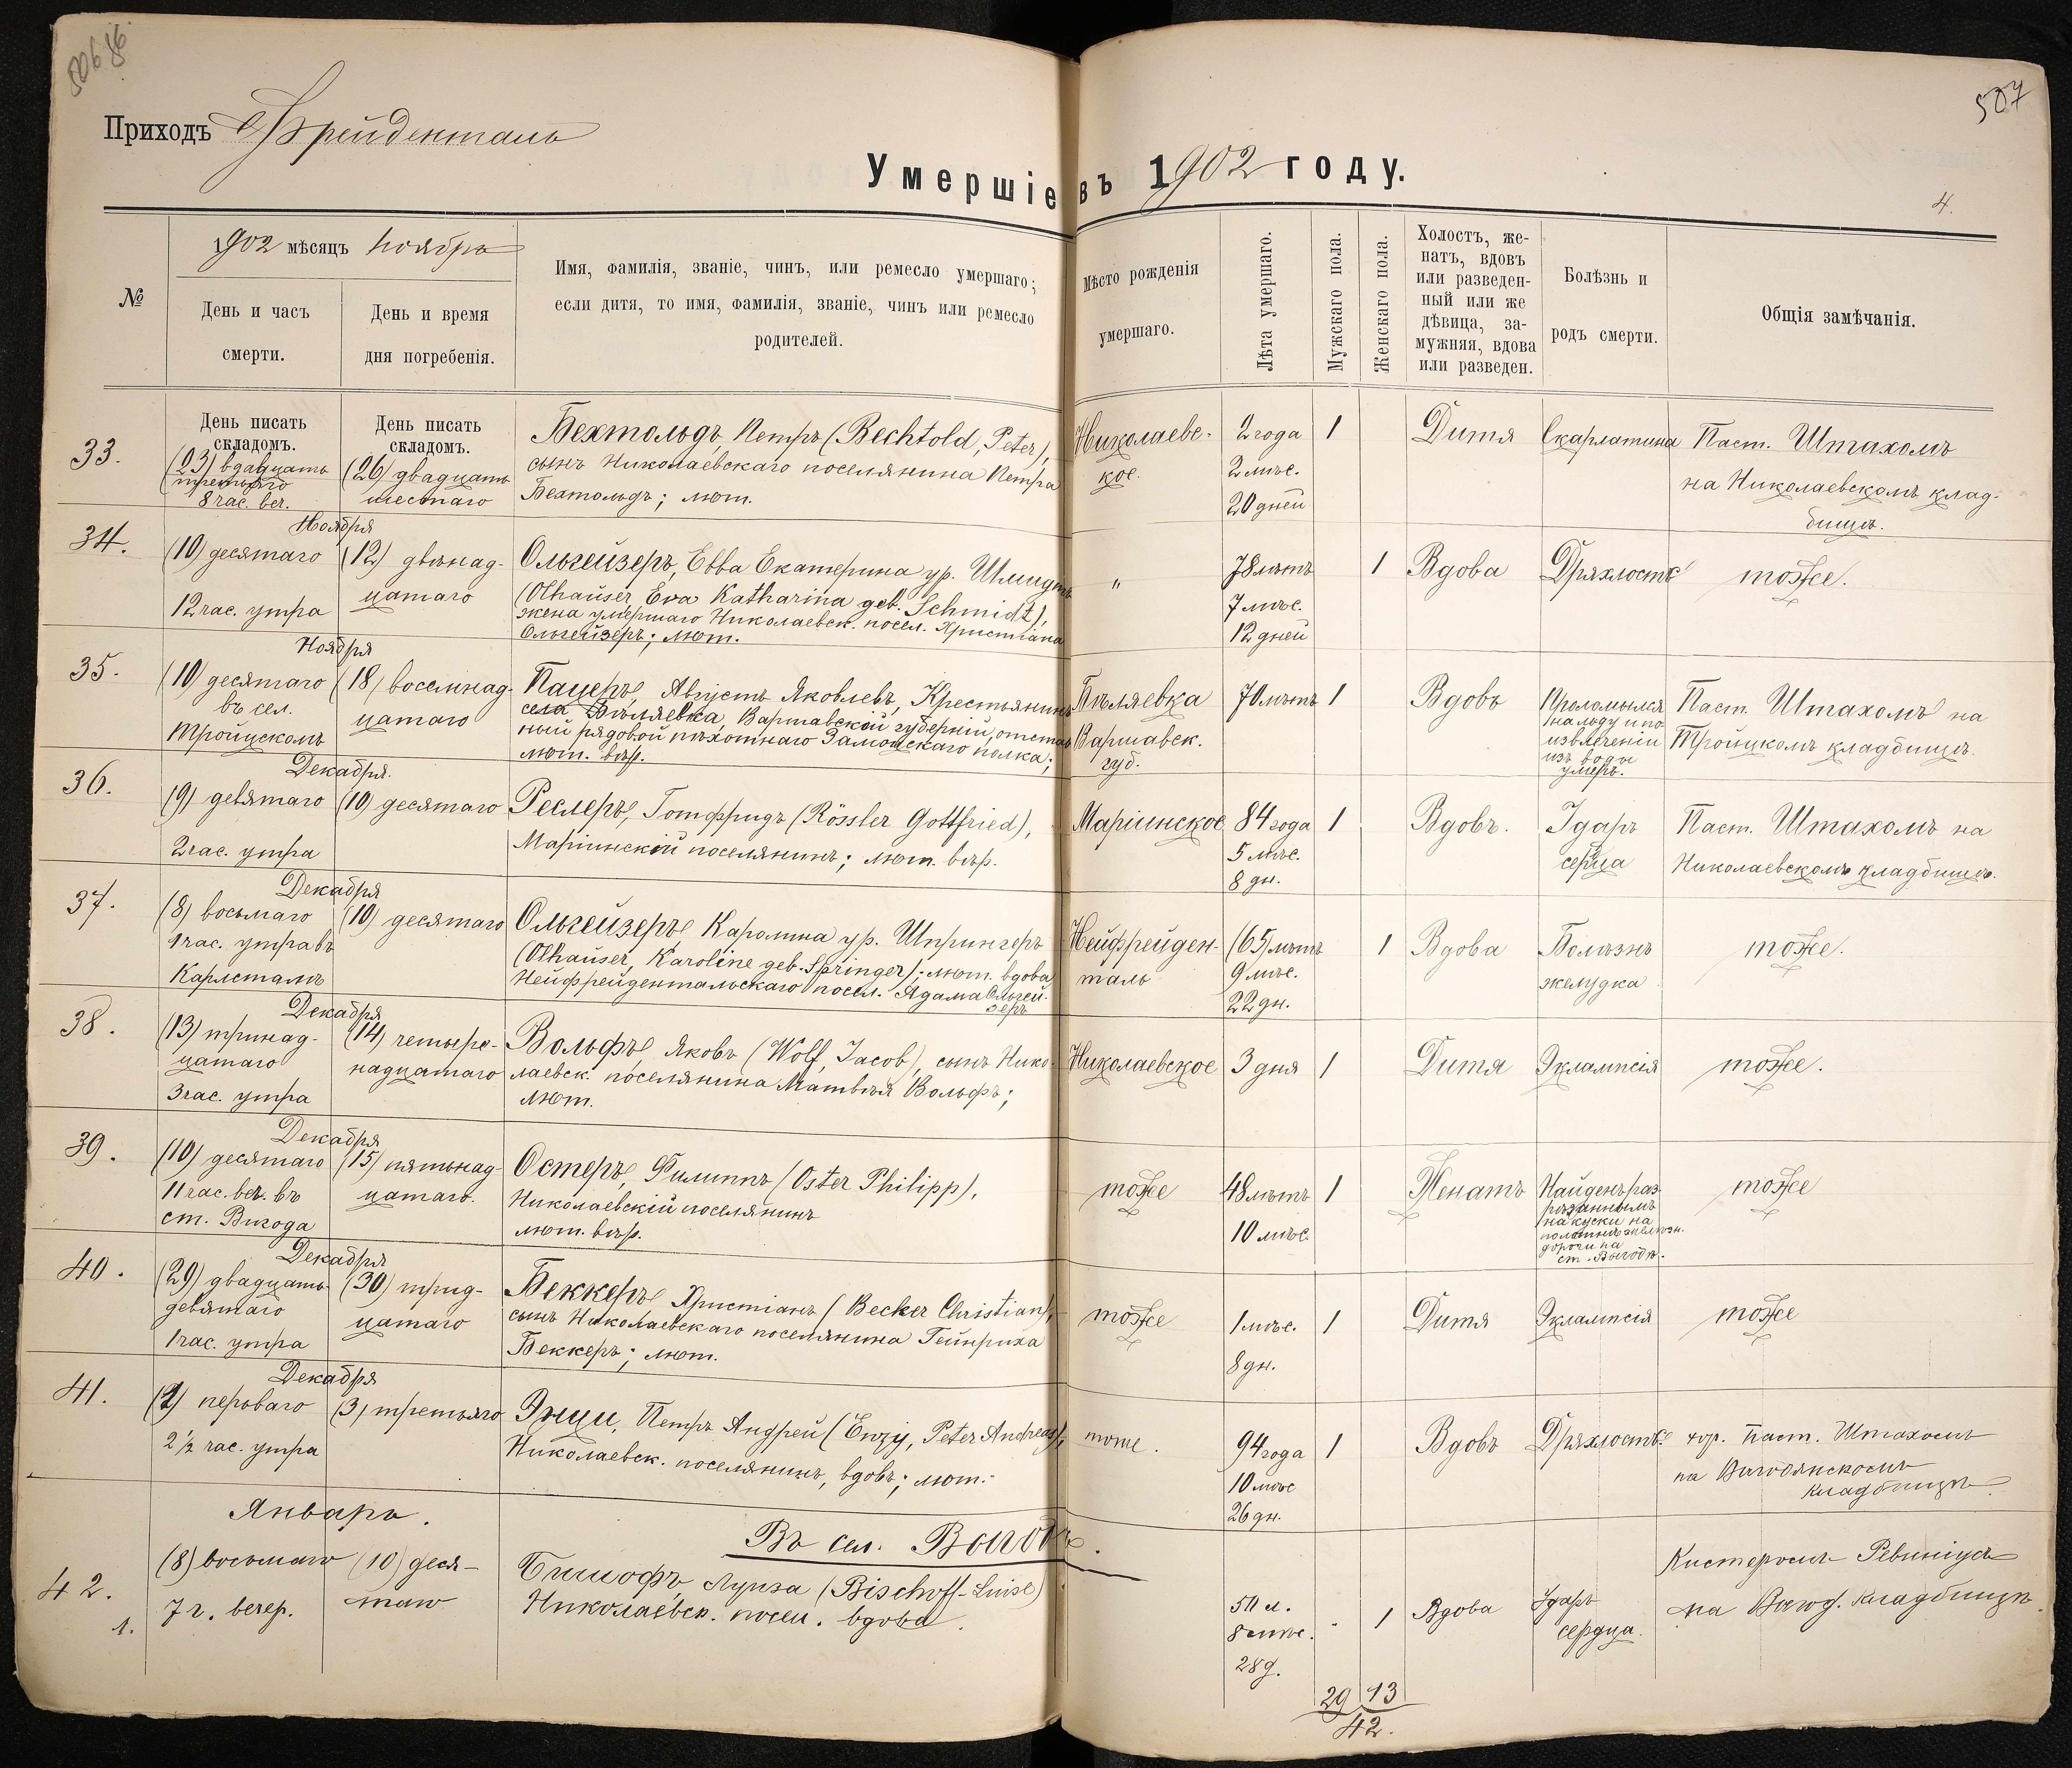 506
507
Приходъ Фрейденталь
Умершіе въ 1902 году.
4.
№
1902 мѣсяцъ Ноябрь
День и часъ
смерти.
День и время
дня погребенія.
Имя, фамилія, званіе, чинъ, или ремесло умершаго;
если дитя, то имя, фамилія, званіе, чинъ или ремесло
родителей.
Мѣсто рожденія
умершаго.
Лѣта умершаго.
Мужскаго пола.
Женскаго пола.
Холостъ, же-
натъ, вдовъ
или разведен-
ный или же
дѣвица, за-
мужняя, вдова
или разведен.
Болѣзнь и
родъ смерти.
Общія замѣчанія.
33.
День писать
складомъ.
(23) двадцать
третьяго
8 час. веч.
День писать
складомъ.
(26) двадцать
шестаго
Бехтольдъ, Петръ (Bechtold, Peter),
сынъ Николаевскаго поселянина Петра
Бехтольдъ; лют.
Николаевс-
кое.
2 года
2 мѣс.
20 дней
1
Дитя
Скарлатина
Паст. Штахомъ
на Николаевскомъ клад-
бищѣ.
34.
Ноября
(10) десятаго
12 час. утра
(12) двѣнад-
цатаго
Ольгейзеръ, Евва Екатерина ур. Шмидтъ
(Olhauser, Eva Katharina geb. Schmidt),
жена умершаго Николаевск. посел. Христіана
Ольгейзеръ; лют.
"
78 лѣтъ
7 мѣс.
12 дней
1
Вдова
Дряхлость
тоже.
35.
Ноября
(10) десятаго
въ сел.
Тройцскомъ
(18) восемнад-
цатаго
Пацеръ, Августъ Яковлевъ, Крестьянинъ
села Бѣляевка, Варшавской губерніи, отстав
ный рядовой пѣхотнаго Замостскаго полка;
лют. вѣр.
Бѣляевка
Варшавск.
губ.
70 лѣтъ
1
Вдовъ
Проломился
на льду и по
извлеченіи
изъ воды
умеръ.
Паст. Штахомъ на
Тройцкомъ кладбищѣ.
36.
Декабря.
(9) девятаго
2 час. утра
(10) десятаго
Реслеръ, Готфридъ (Rössler Gottfried),
Маріинскій поселянинъ; лют. вѣр.
Маріинское
84 года
5 мѣс.
8 дн.
1
Вдовъ.
Ударъ
серца
Паст. Штахомъ на
Николаевскомъ кладбищѣ.
37.
Декабря
(8) восьмаго
1 час. утра въ
Карлсталъ
(10) десятаго
Ольгейзеръ Каролина ур. Шпрингеръ
(Olhauser, Karoline geb. Springer); лют. вдова
Нейфрейдентальскаго посел. Адама Ольгей-
зеръ
Нейфрейден-
таль
(65) лѣтъ
9 мѣс.
22 дн.
1
Вдова
Болѣзнь
желудка
тоже.
38.
Декабря
(13) тринад-
цатаго
3 час. утра
(14) четыре-
надцатаго
Вольфъ, Яковъ (Wolf, Jacob), сынъ Нико-
лаевск. поселянина Матвѣя Вольфъ;
лют.
Николаевское
3 дня
1
Дитя
Эклампсія
тоже.
39.
Декабря
(10) десятаго
11 час. веч. въ
ст. Выгода
(15) пятьнад-
цатаго.
Остеръ, Филиппъ (Oster Philipp),
Николаевскій поселянинъ
лют. вѣр.
тоже
48 лѣтъ
10 мѣс.
1
Женатъ
Найденъ раз-
рѣзаннымъ
на куски на
полотнѣ желѣзн.
дороги на
ст. Выгодѣ.
тоже
40.
Декабря
(29) двадцать
девятаго
1 час. утра
(30) трид-
цатаго
Беккеръ, Христіанъ (Becker Christian),
сынъ Николаевскаго поселянина Гейнриха
Беккеръ; лют.
тоже
1 мѣс.
8 дн.
1
Дитя
Эклампсія
тоже
41.
Декабря
(1) перьваго
2 1/2 час. утра
(3) третьяго
Энци, Петръ Андрей (Enzy, Peter Andreas),
Николаевск. поселянинъ, вдовъ; лют.
тоже.
94 года
10 мѣс
26 дн.
1
Вдовъ
Дряхлость.
Паст. Штахомъ
на Выгодянскомъ
кладбищѣ.
Январь.
Въ сел. Выгодѣ.
42.
1.
(8) восьмаго
7 ч. вечер.
(10) деся-
таго
Бишофъ, Луиза (Bischoff Luise)
Николаевск. посел. вдова.
8 мѣс.
28 д.
1
Вдова
Ударъ
сердца.
Кистеромъ Ревиніусъ
на Выгод. кладбищѣ.
29 13
42.